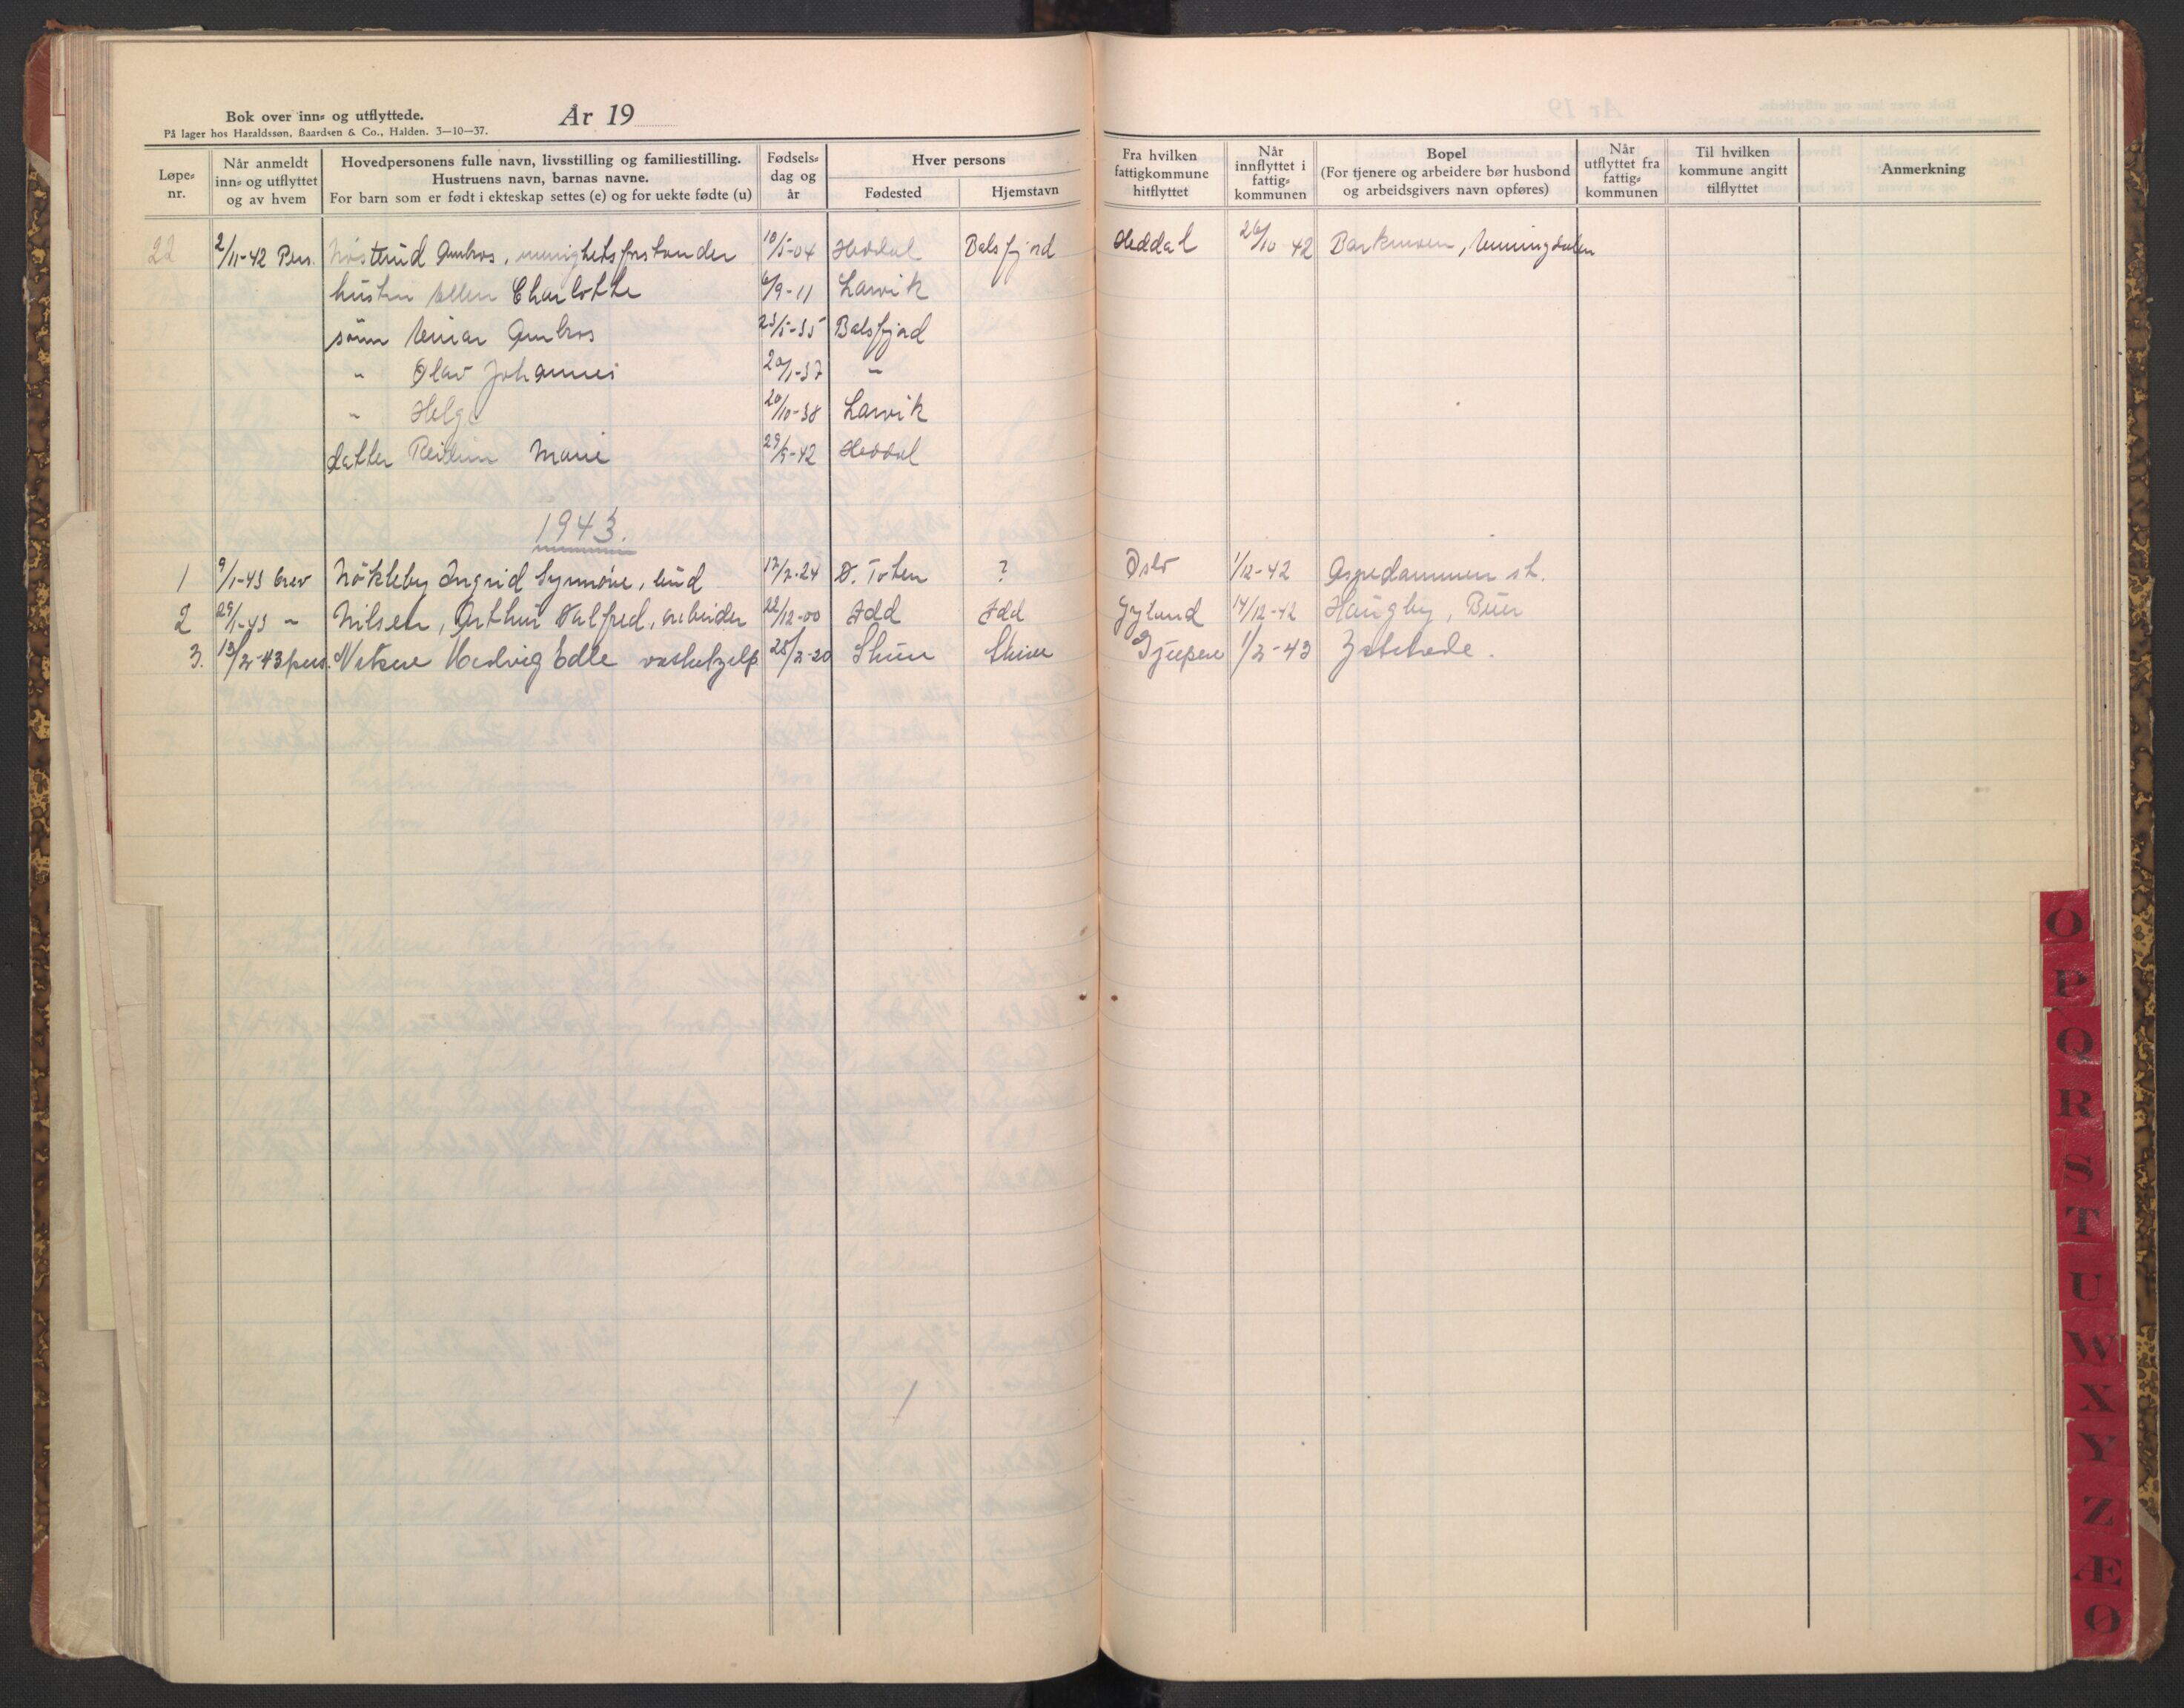 Bok over inn- og utflyttede.
På lager hos Haraldssøn, Baardsen & Co., Halden. 3—10—37.
År 19
Løpe-nr.
Når anmeldt inn- og utflyttet og av hvem
Hovedpersonens fulle navn, livsstilling og familiestilling. Hustruens navn, barnas navne. For barn som er født i ekteskap settes (e) og for uekte fødte (u)
Fødsels-dag og år
Hver persons
Fødested
Hjemstavn
Fra hvilken fattigkommune hitflyttet
Når innflyttet i fattig-kommunen
Bopel (For tjenere og arbeidere bør husbond og arbeidsgivers navn opføres)
Når utflyttet fra fattig-kommunen
Til hvilken kommune angitt tilflyttet
Anmerkning
22 2/11-42 Pers. Ambros, menighetsforstander 10/5-04 Heddal Balsfjord Heddal 26/10 42
hustru Ellen Charlotte 6/9-11 Larvik
sønn Einar Ambros 23/5-35 Balsfjord
" Olav Johannes 20/1-37 "
" Helge 20/10-38 Larvik
datter Reidun Marie 29/5-42 Heddal
1943.
1 9/1-43 brev Nökleby Ingrid Synnöve, 17/7-24 Ö. Toten ? Oslo 1/12-42 Aspedammen st.
2 29/1-43 " Nilsen, Arthur Valfred, arbeider 22/12-00 Idd Idd Gyland 14/12-42 Haugby, Buer
3. 13/2-43 pers. Hedvig Edle 25/2-20 1/2-43
O
P
Q
R
S
T
U
W
X
Y
Z
Æ
Ø